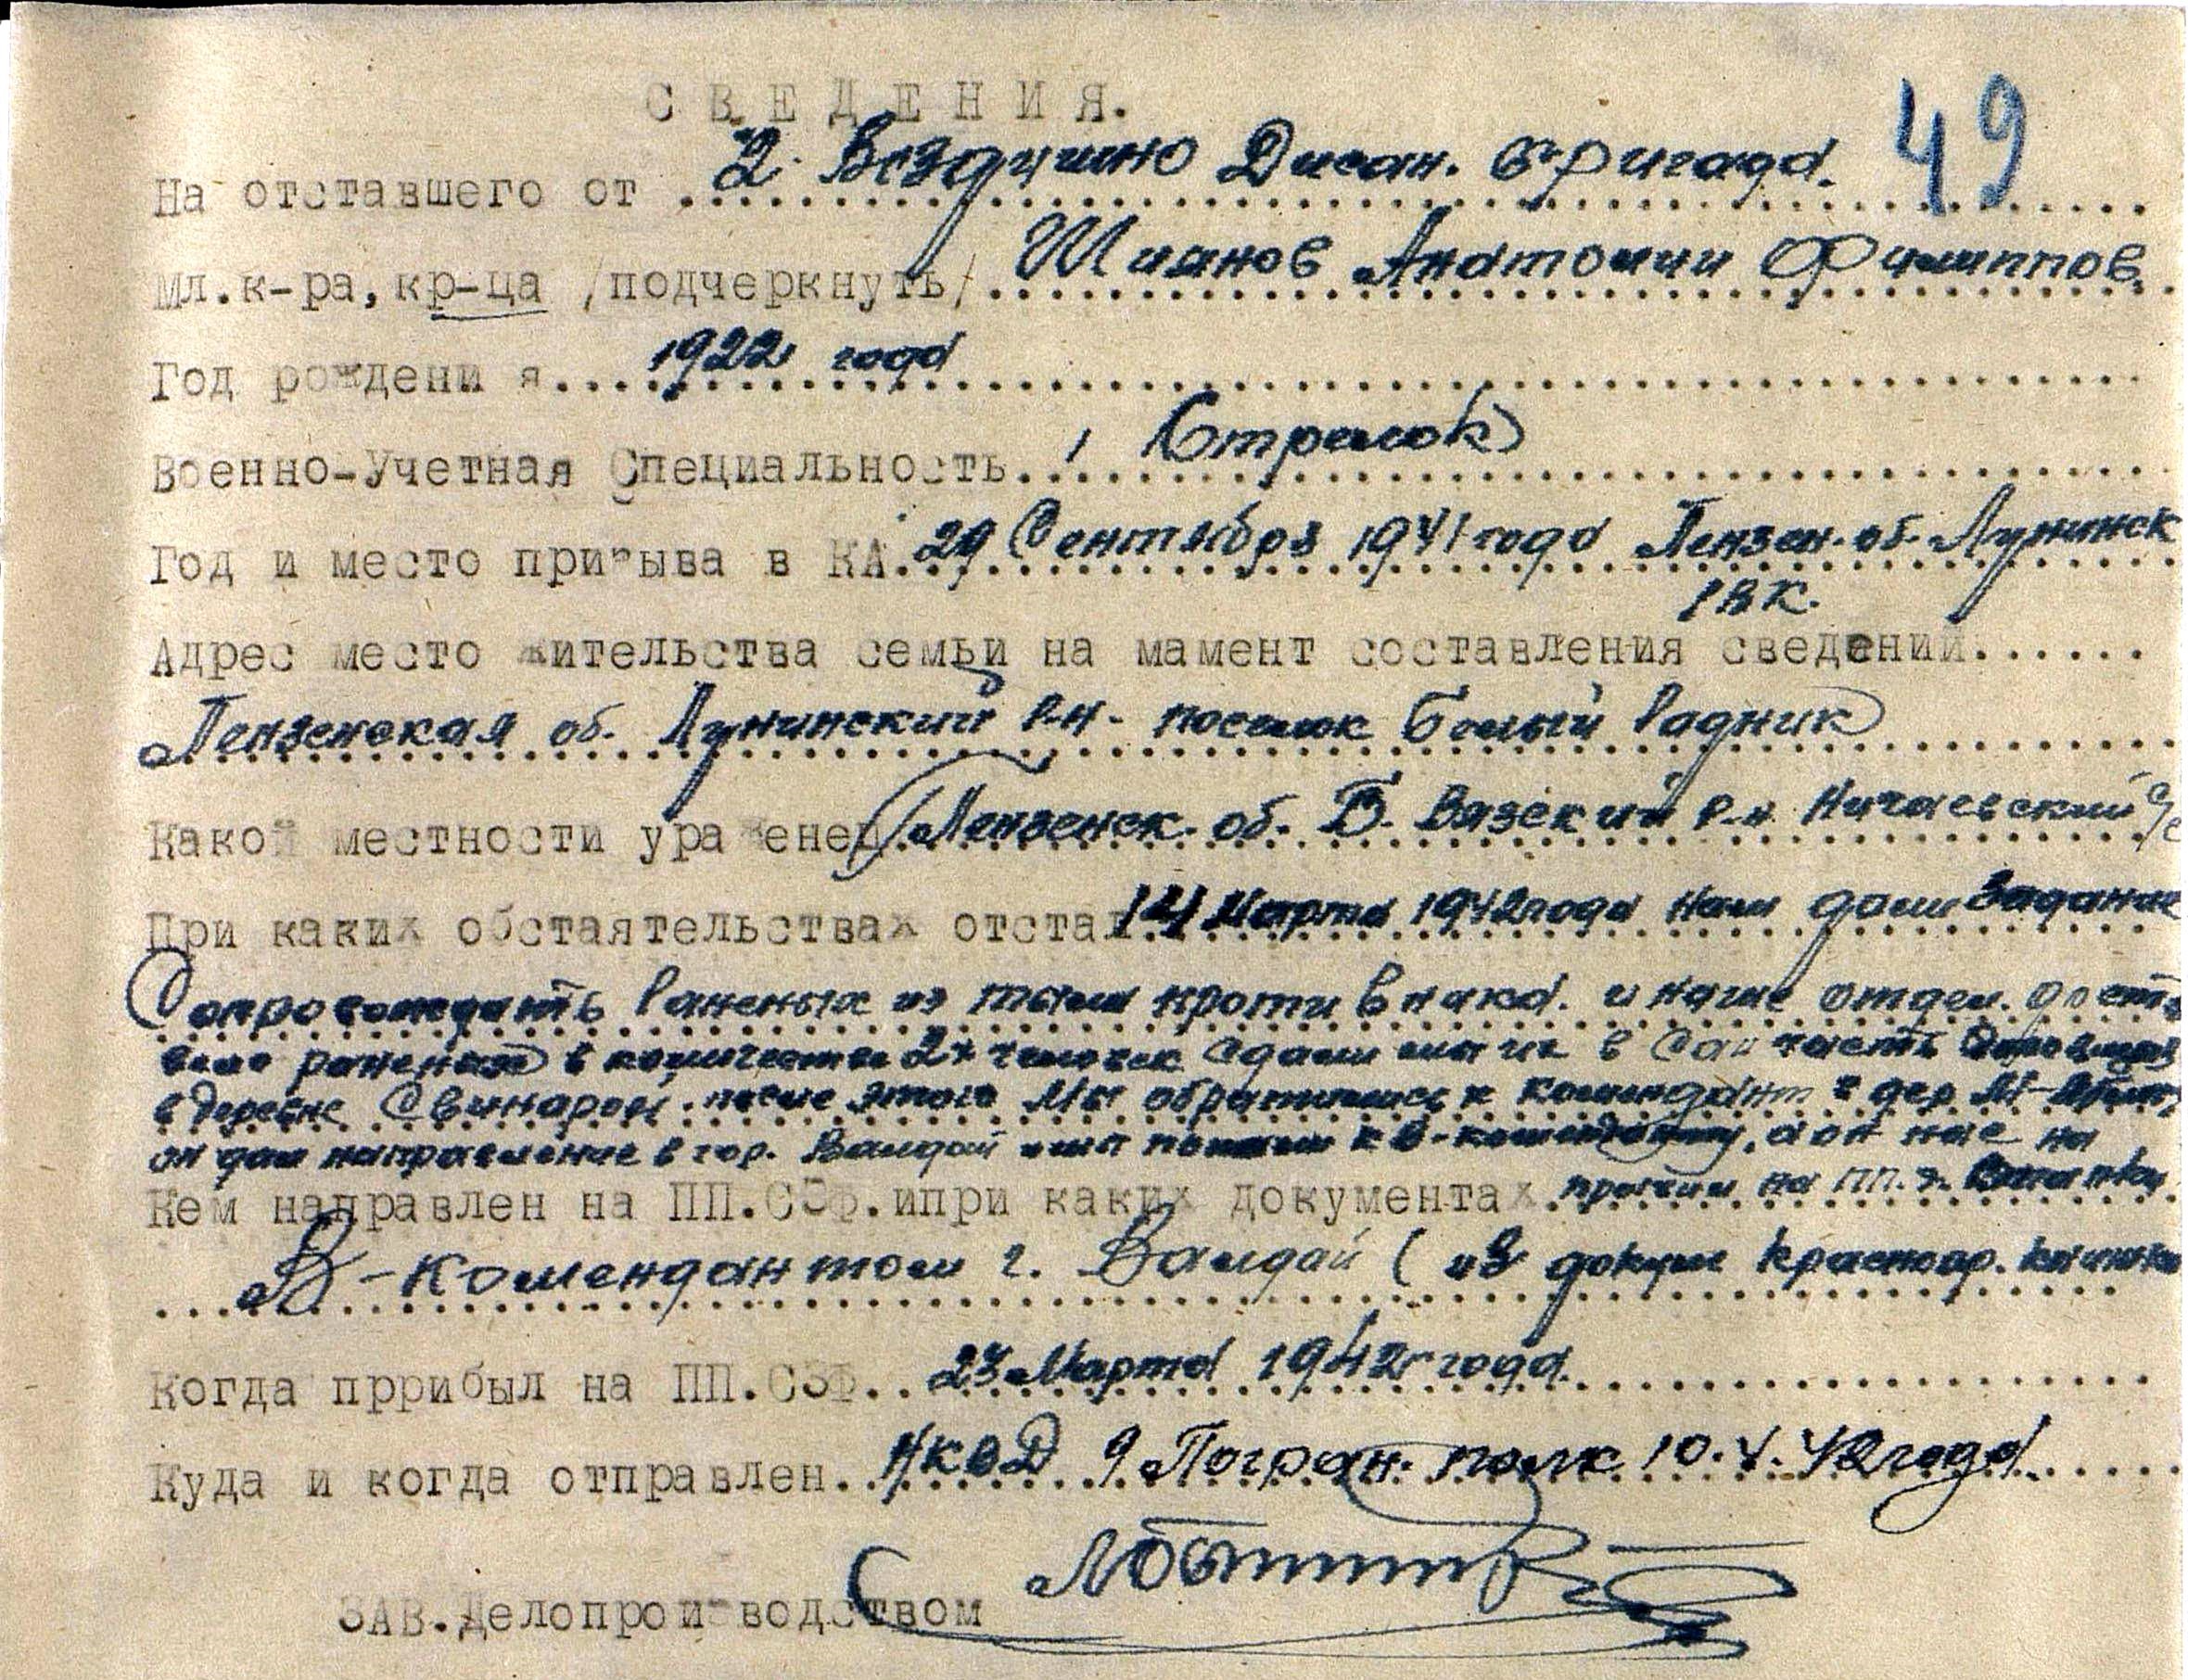 СВЕДЕНИЯ.
49
На отставшего от 2. Воздушно Десан. бригада.
Мл.к-ра, кр-ца /подчеркнуть/ Анатолий Филиппов.
Год рождени я 1922 года
Военно-Учетная Специальность 1 Стрелок
Год и место призыва в КА 29 Сентября 1941 года Пензен. об. Лунинск
РВК.
Адрес место жительства семьи на мамент составления сведений
Пензенская об. Лунинский Р-н. поселок Белый Радник
Какой местности ураженец Пензенск. об. Б. Вязский р-н Ничаевский с/с
При каких обстаятельствах отстал 14 Марта 1942 года нам дали Задание
Сопровождать Раненых из тыла против и наше отдел.
раненых в количестве 2х человек Сдали мы их в Сан часть
в деревне после этого Мы обратились к комендант в дер.
он дал направление в гор. Валдай к В-коменданту, а он нас на
Кем направлен на ПП.СЗФ.ипри каких документах на ПП. г.
В-Комендантом г. Валдай ( из докум красноар. книжка
Когда пррибыл на ПП.СЗФ. 23 Марта 1942 года.
Куда и когда отправлен. НКВД 9 Погран. полк 10.4.42 года.
ЗАВ.Делопроизводством